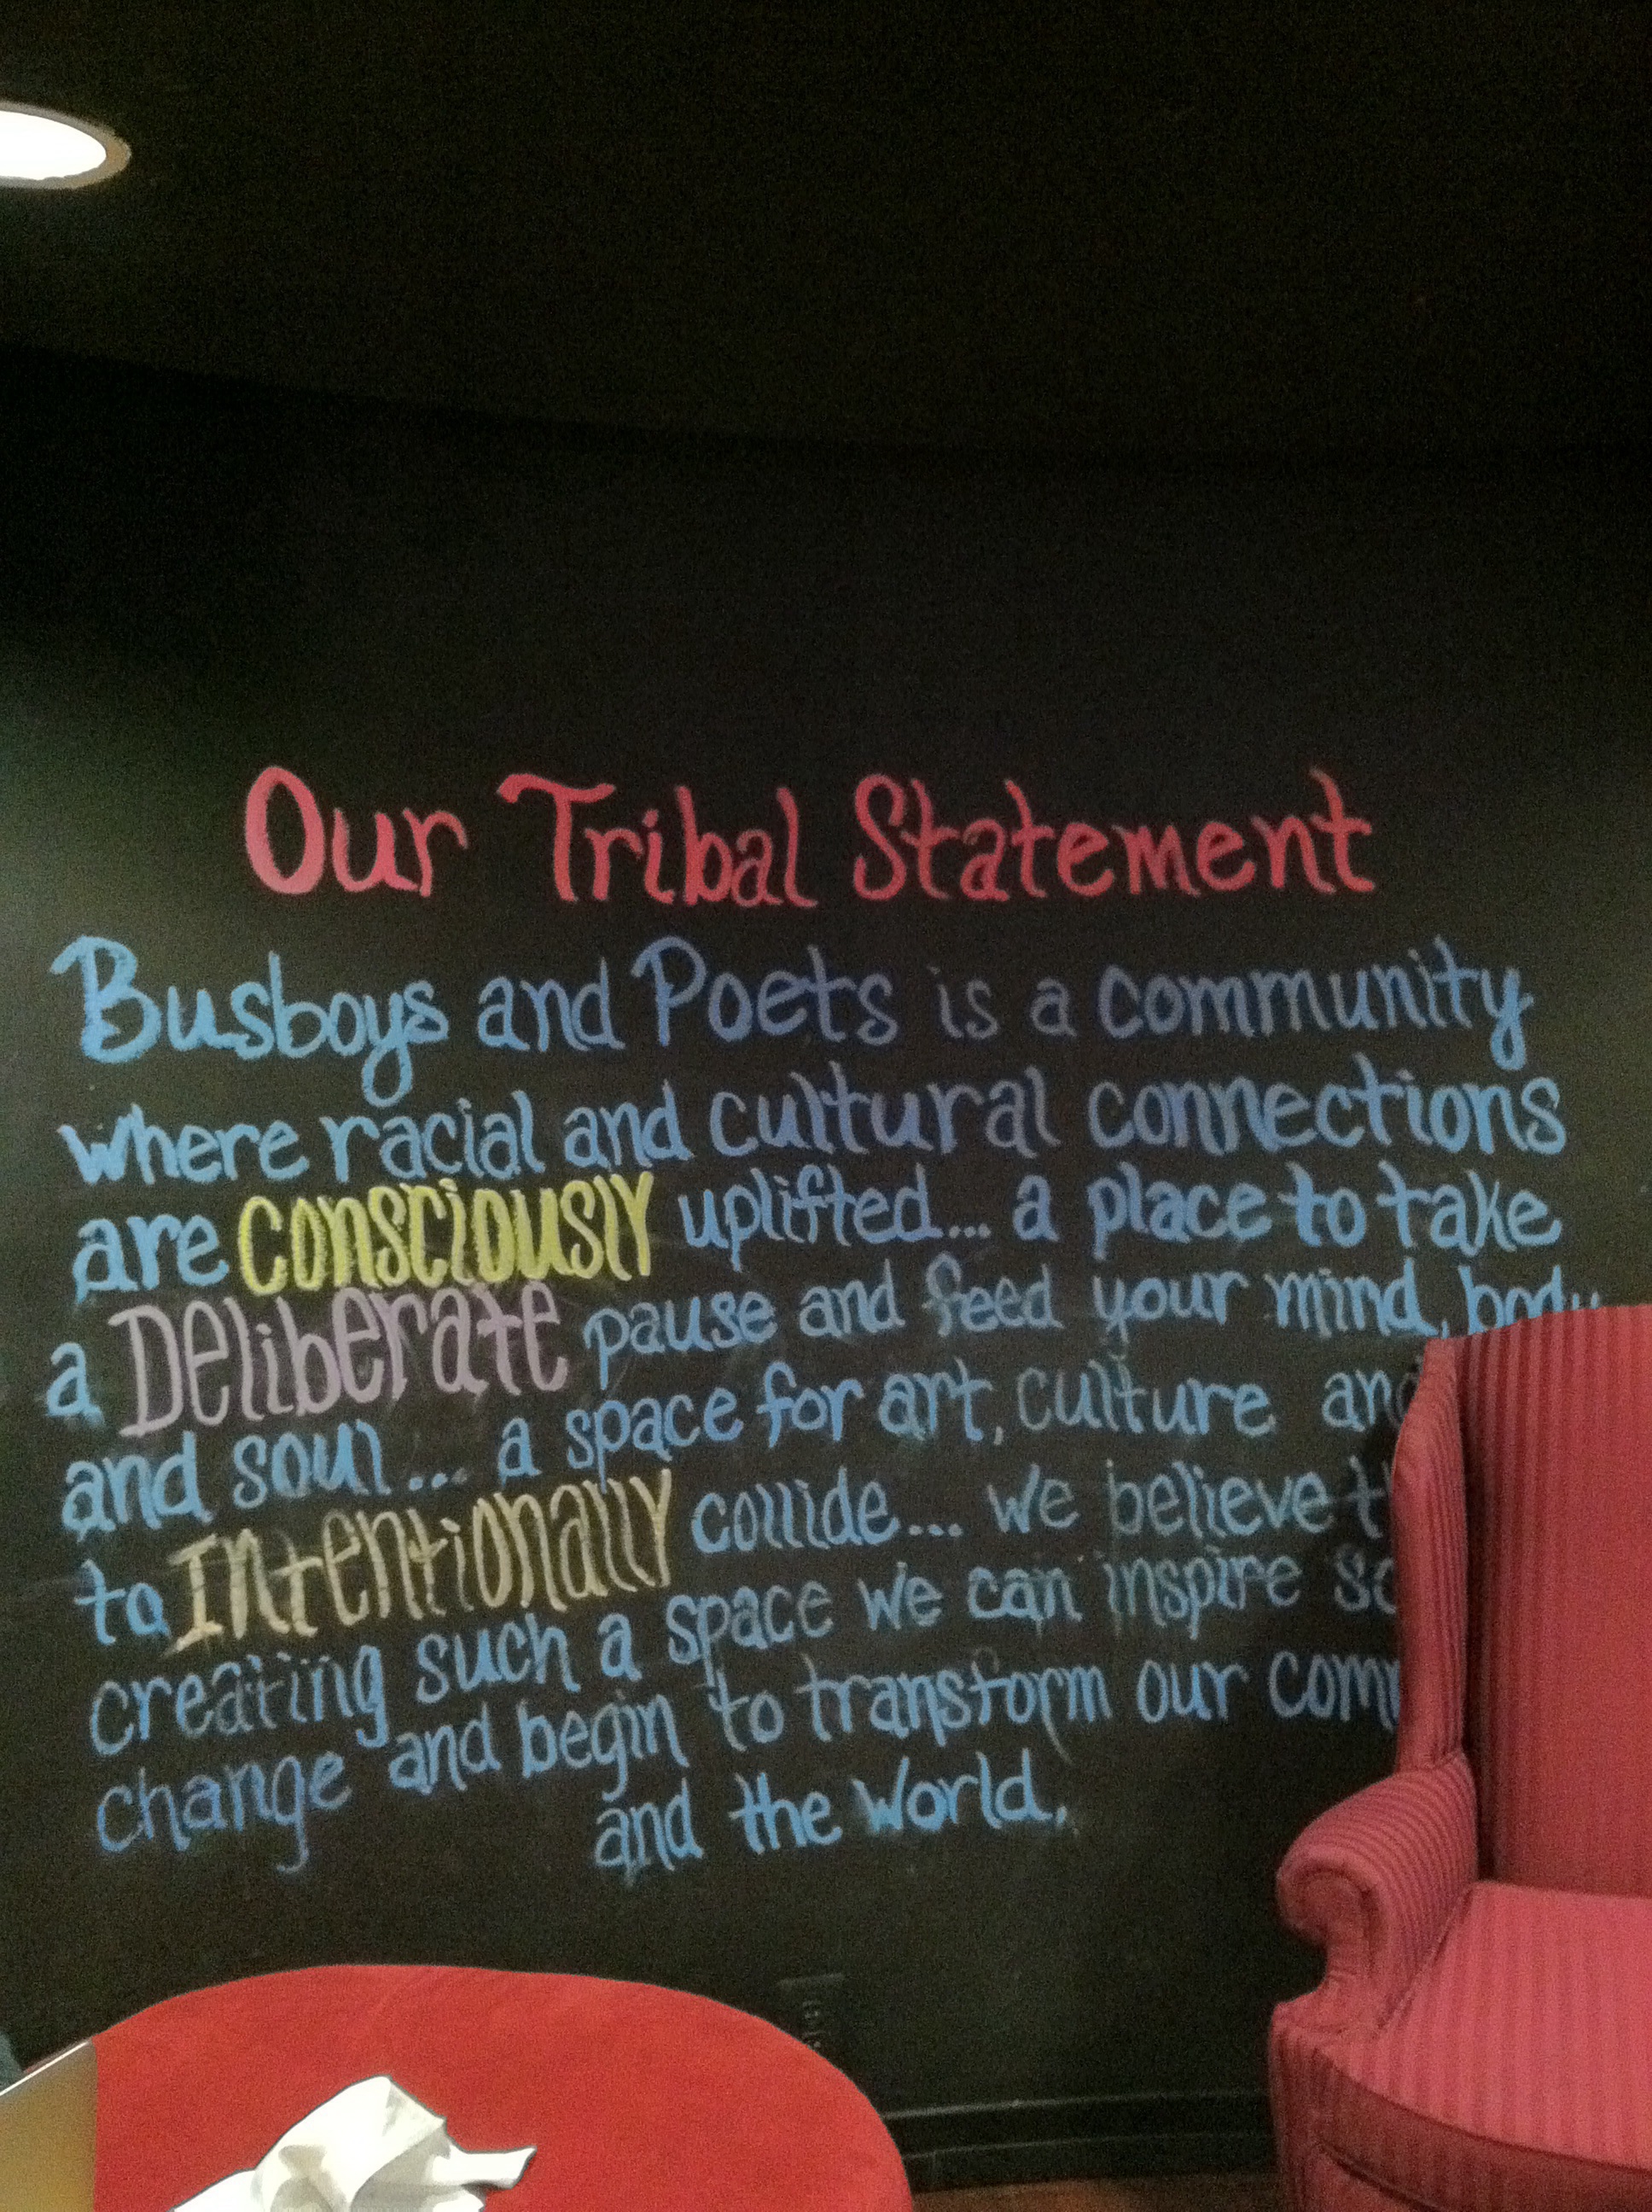 Our Tribal Statement
Busboys and Poets is a community
where racial and cultural connections
are consciously uplifted... a place to take
a Deliberate pause and feed your mind, body
and soul... a space for art, culture and
to Intentionally collide... we believe
creating such a space we can inspire
change and begin to transform our
and the world.